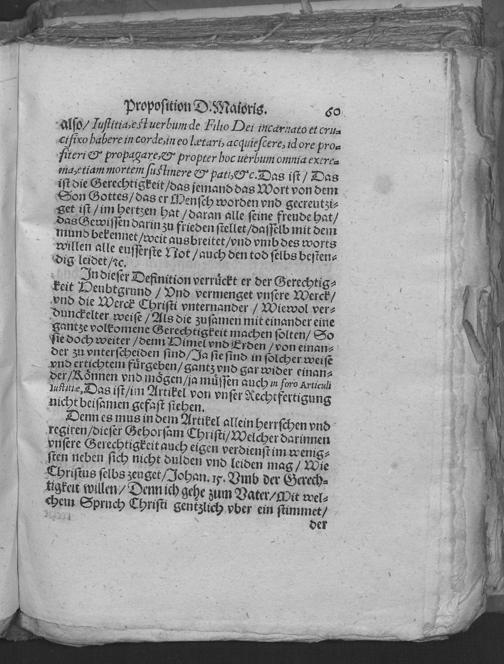 Proposition D. Maioris. 60
also/ Iustitia, est uerbum de Filio Dei incarnato et cru-
cifixo habere in corde, in eo lætari, acquiescere, id ore pro-
fiteri & propagare, & propter hoc uerbum omnia extre-
ma, etiam mortem sustinere & pati, &c. Das ist/ Das
ist die Gerechtigkeit/ das jemand das Wort von dem
Son Gottes/ das er Mensch worden vnd gecreutzi-
get ist/ im hertzen hat/ daran alle seine freude hat/
das Gewissen darin zu frieden stellet/ dasselb mit dem
mund bekennet/ weit ausbreitet/ vnd vmb des worts
willen alle eusserste Not/ auch den tod selbs besten-
dig leidet/ ꝛc.
In dieser Definition verrückt er der Gerechtig-
keit Heubtgrund/ Vnd vermenget vnsere Werck/
vnd die Werck Christi vnternander/ Wiewol ver-
dunckelter weise/ Als die zusamen mit einander eine
gantze volkomene Gerechtigkeit machen solten/ So
sie doch weiter/ denn Himel vnd Erden/ von einan-
der zu vnterscheiden sind/ Ja sie sind in solcher weise
vnd ertichtem fürgeben/ gantz vnd gar wider einan-
der/ Können vnd mögen/ ja müssen auch in foro Articuli
Iustitiæ, Das ist/ im Artikel von vnser Rechtfertigung
nicht beisamen gefast stehen.
Denn es mus in dem Artikel allein herrschen vnd
regiren/ dieser Gehorsam Christi/ Welcher darinnen
vnsere Gerechtigkeit auch eigen verdienst im wenig-
sten neben sich nicht dulden vnd leiden mag/ Wie
Christus selbs zeuget/ Johan. 15. Vmb der Gerech-
tigkeit willen/ Denn ich gehe zum Vater/ Mit wel-
chem Spruch Christi gentzlich vber ein stimmet/
der